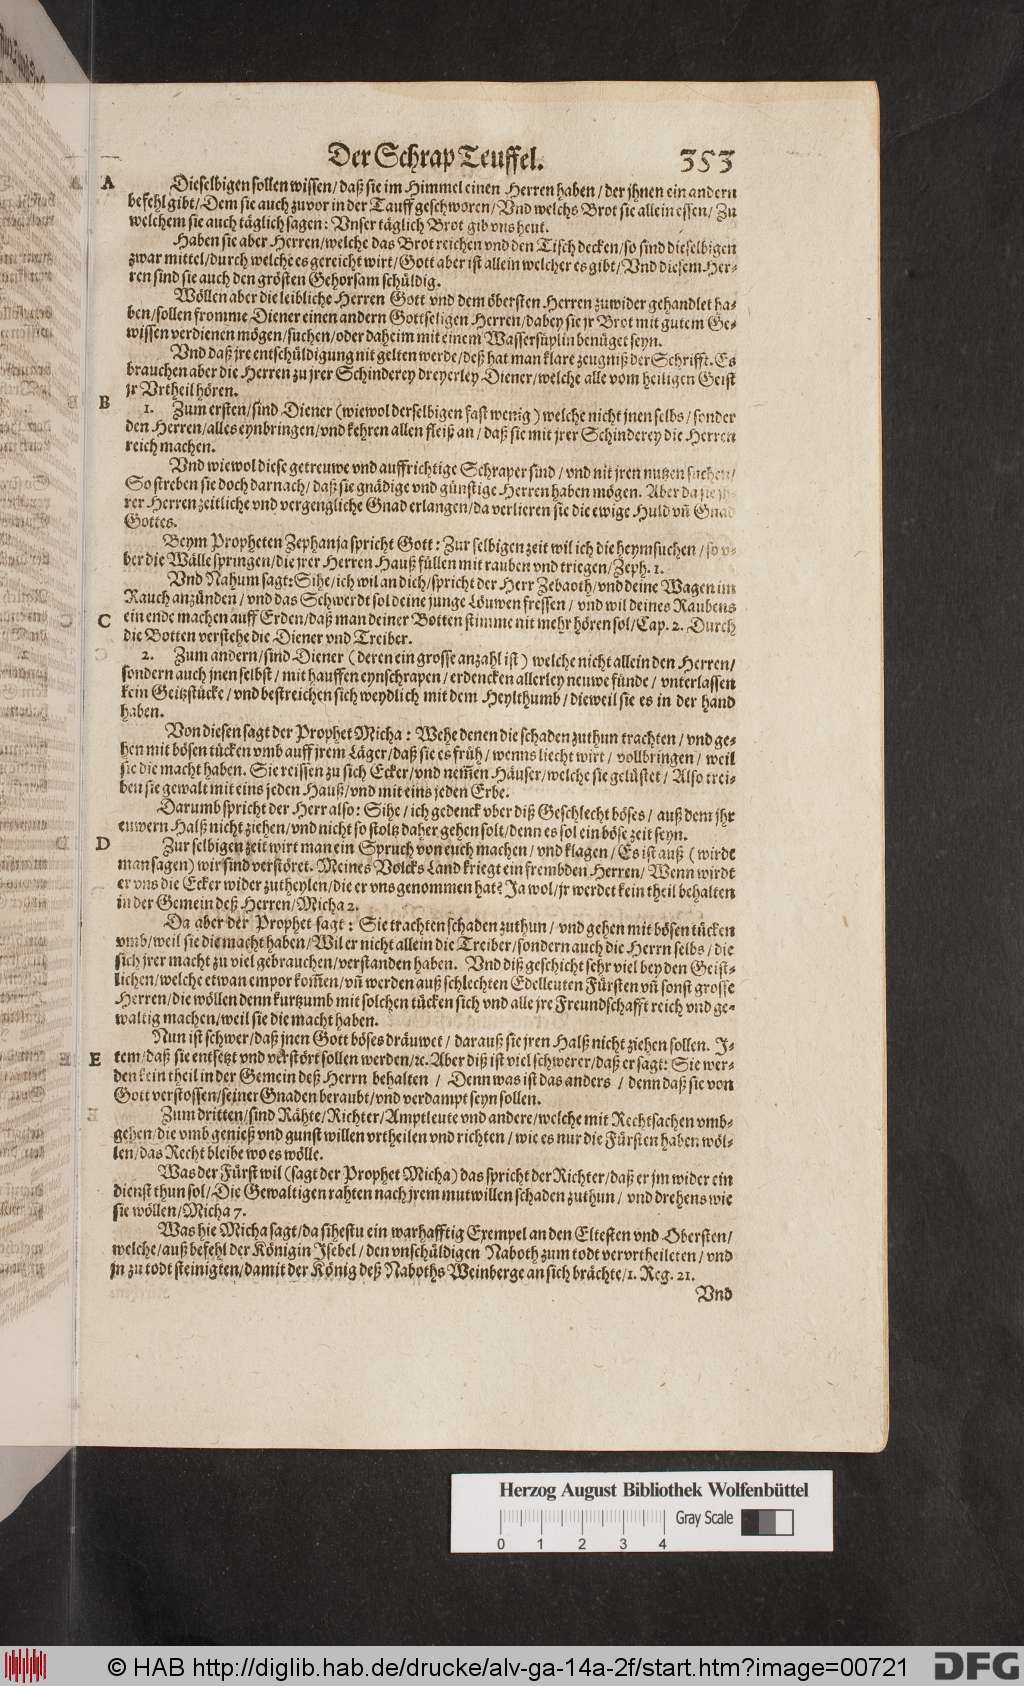 Der Schrap Teuffel. 353
A Dieselbigen sollen wissen / daß sie im Himmel einen Herren haben / der jhnen ein andern
befehl gibt / Dem sie auch zuvor in der Tauff geschworen / Vnd welchs Brot sie allein essen / Zu
welchem sie auch täglich sagen: Vnser täglich Brot gib vns heut.
Haben sie aber Herren / welche das Brot reichen vnd den Tisch decken / so sind dieselbigen
zwar mittel / durch welche es gereicht wirt / Gott aber ist allein welcher es gibt / Vnd diesem Her-
ren sind sie auch den grösten Gehorsam schüldig.
Wöllen aber die leibliche Herren Gott vnd dem öbersten Herren zuwider gehandlet ha-
ben / sollen fromme Diener einen andern Gottseligen Herren / dabey sie jr Brot mit gutem Ge-
wissen verdienen mögen / suchen / oder daheim mit einem Wassersüplin benüget seyn.
Vnd daß jre entschüldigung nit gelten werde / deß hat man klare zeugniß der Schrifft. Es
brauchen aber die Herren zu jrer Schinderey dreyerley Diener / welche alle vom heiligen Geist
jr Vrtheil hören.
B 1. Zum ersten / sind Diener (wiewol derselbigen fast wenig) welche nicht jnen selbs / sonder
den Herren / alles eynbringen / vnd kehren allen fleiß an / daß sie mit jrer Schinderey die Herren
reich machen.
Vnd wiewol diese getreuwe vnd auffrichtige Schraper sind / vnd nit jren nutzen suchen /
So streben sie doch darnach / daß sie gnädige vnd günstige Herren haben mögen. Aber da sie jh-
rer Herren zeitliche vnd vergengliche Gnad erlangen / da verlieren sie die ewige Huld vñ Gnad
Gottes.
Beym Propheten Zephanja spricht Gott: Zur selbigen zeit wil ich die heymsuchen / so v-
ber die Wälle springen / die jrer Herren Hauß füllen mit rauben vnd triegen / Zeph. 1.
Vnd Nahum sagt: Sihe / ich wil an dich / spricht der Herr Zebaoth / vnd deine Wagen im
Rauch anzünden / vnd das Schwerdt sol deine junge Löuwen fressen / vnd wil deines Raubens
C ein ende machen auff Erden / daß man deiner Botten stimme nit mehr hören sol / Cap. 2. Durch
die Botten verstehe die Diener vnd Treiber.
2. Zum andern / sind Diener (deren ein grosse anzahl ist) welche nicht allein den Herren /
sondern auch jnen selbst / mit hauffen eynschrapen / erdencken allerley neuwe fünde / vnterlassen
kein Geitzstücke / vnd bestreichen sich weydlich mit dem Heylthumb / dieweil sie es in der hand
haben.
Von diesen sagt der Prophet Micha: Wehe denen die schaden zuthun trachten / vnd ge-
hen mit bösen tücken vmb auff jrem Läger / daß sie es früh / wenns liecht wirt / vollbringen / weil
sie die macht haben. Sie reissen zu sich Ecker / vnd nemen Häuser / welche sie gelüstet / Also trei-
ben sie gewalt mit eins jeden Hauß / vnd mit eins jeden Erbe.
Darumb spricht der Herr also: Sihe / ich gedenck vber diß Geschlecht böses / auß dem jhr
euwern Halß nicht ziehen / vnd nicht so stoltz daher gehen solt / denn es sol ein böse zeit seyn.
D Zur selbigen zeit wirt man ein Spruch von euch machen / vnd klagen / Es ist auß (wirdt
man sagen) wir sind verstöret. Meines Volcks Land kriegt ein frembden Herren / Wenn wirdt
er vns die Ecker wider zutheylen / die er vns genommen hat? Ja wol / jr werdet kein theil behalten
in der Gemein deß Herren / Micha 2.
Da aber der Prophet sagt: Sie trachten schaden zuthun / vnd gehen mit bösen tücken
vmb / weil sie die macht haben / Wil er nicht allein die Treiber / sondern auch die Herrn selbs / die
sich jrer macht zu viel gebrauchen / verstanden haben. Vnd diß geschicht sehr viel bey den Geist-
lichen / welche etwan empor kom̃en / vñ werden auß schlechten Edelleuten Fürsten vñ sonst grosse
Herren / die wöllen denn kurtzumb mit solchen tücken sich vnd alle jre Freundschafft reich vnd ge-
waltig machen / weil sie die macht haben.
Nun ist schwer / daß jnen Gott böses dräuwet / darauß sie jren Halß nicht ziehen sollen. I-
E tem / daß sie entsetzt vnd verstört sollen werden / ꝛc. Aber diß ist viel schwerer / daß er sagt: Sie wer-
den kein theil in der Gemein deß Herrn behalten / Denn was ist das anders / denn daß sie von
Gott verstossen / seiner Gnaden beraubt / vnd verdampt seyn sollen.
Zum dritten / sind Rähte / Richter / Amptleute vnd andere / welche mit Rechtsachen vmb-
gehen / die vmb genieß vnd gunst willen vrtheilen vnd richten / wie es nur die Fürsten haben wöl-
len / das Recht bleibe wo es wölle.
Was der Fürst wil (sagt der Prophet Micha) das spricht der Richter / daß er jm wider ein
dienst thun sol / Die Gewaltigen rahten nach jrem mutwillen schaden zuthun / vnd drehens wie
sie wöllen / Micha 7.
Was hie Micha sagt / da sihestu ein warhafftig Exempel an den Eltesten vnd Obersten /
welche / auß befehl der Königin Isebel / den vnschüldigen Naboth zum todt vervrtheileten / vnd
jn zu todt steinigten / damit der König deß Naboths Weinberge an sich brächte / 1. Reg. 21.
Vnd
Herzog August Bibliothek Wolfenbüttel
Gray Scale
0 1 2 3 4
© HAB http://diglib.hab.de/drucke/alv-ga-14a-2f/start.htm?image=00721
DFG